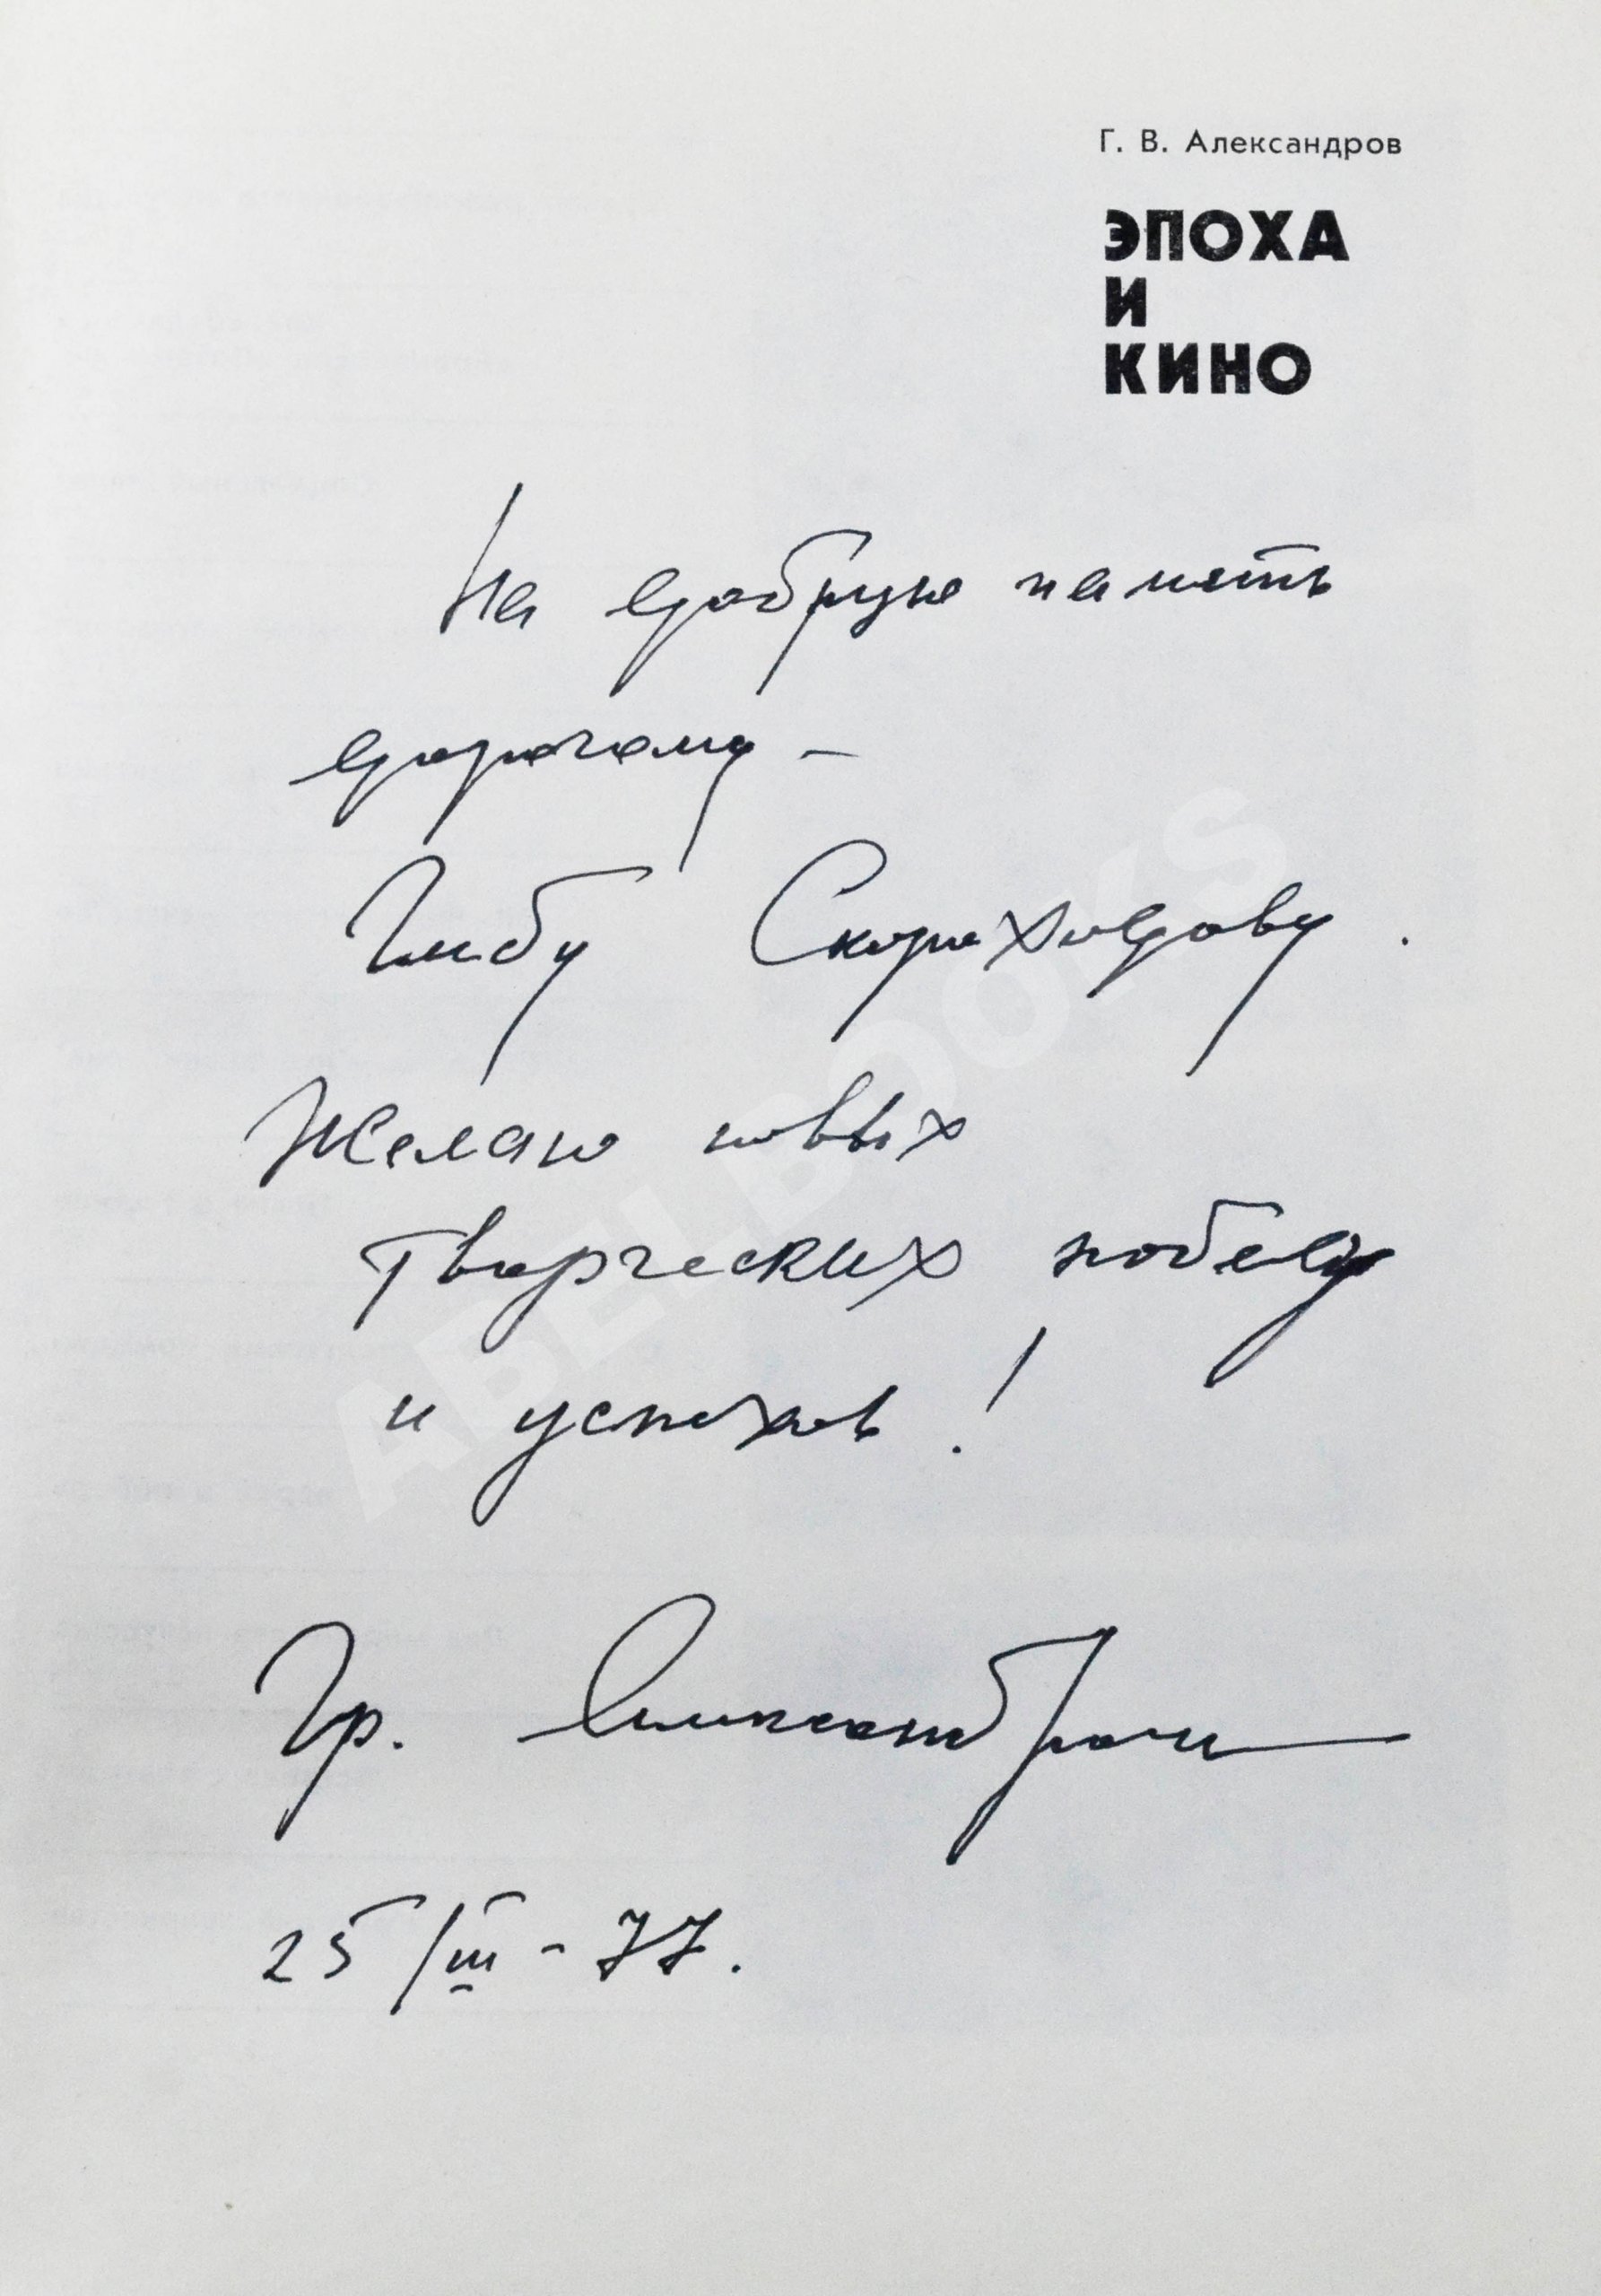 Г. В. Александров
ЭПОХА
И
КИНО
На добрую память
дорогому –
Глебу Скороходову.
Желаю новых
творческих побед
и успехов!
Гр. Александров
25/III - 77.
ABELBOOKS